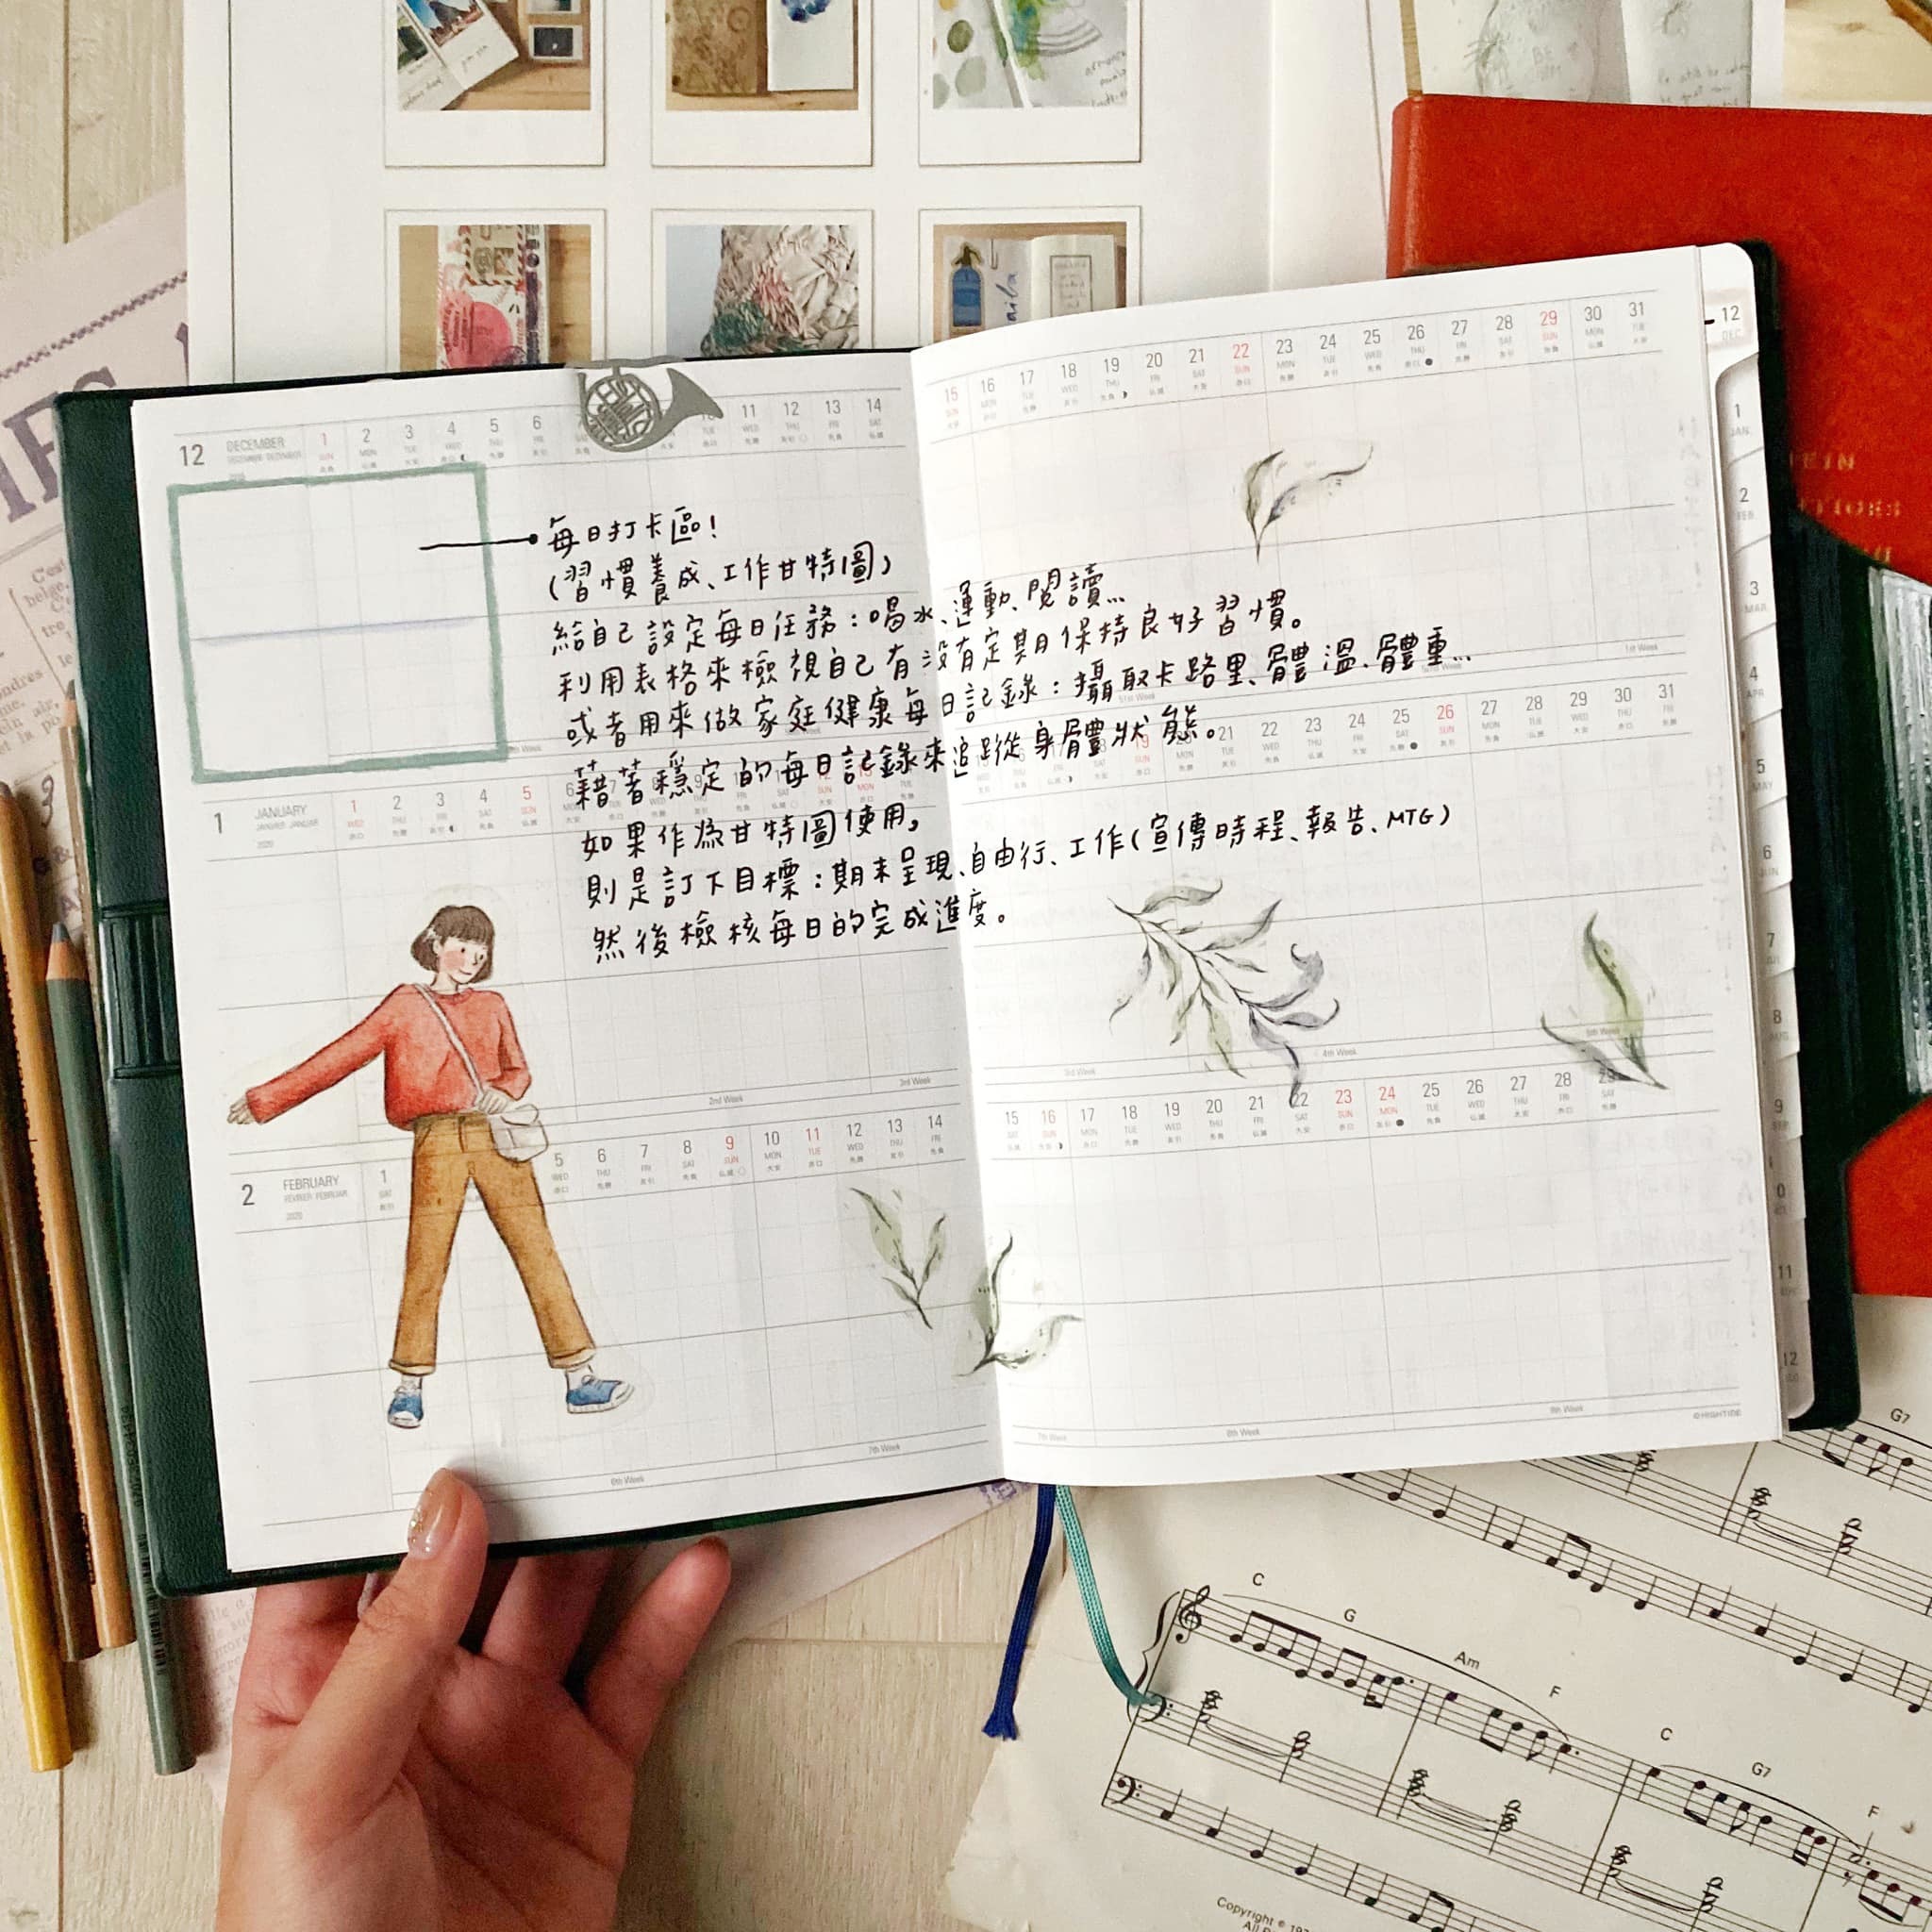 12 DECEMBER
1 2 3 4 5 6 11 12 13 14
SUN MON TUE WED THU FRI WED THU FRI SAT
15 16 17 18 19 20 21 22 23 24 25 26 27 28 29 30 31
每日打卡區!
(習慣養成、工作甘特圖)
給自己設定每日任務:喝水、運動、閱讀...
利用表格來檢視自己有沒有定期保持良好習慣。
或者用來做家庭健康每日記錄:攝取卡路里、體溫、體重...
藉著穩定的每日記錄來追蹤身體狀態。
如果作為甘特圖使用,
則是訂下目標:期末呈現、自由行、工作(宣傳時程、報告、MTG)
然後檢核每日的完成進度。
1st Week
1 JANUARY
2020
1 2 3 4 5
21 22 23 24 25 26 27 28 29 30 31
2nd Week 3rd Week
3rd Week 4th Week 5th Week
2 FEBRUARY
2020
1 5 6 7 8 9 10 11 12 13 14
SAT WED THU FRI SAT SUN MON TUE WED THU FRI
15 16 17 18 19 20 21 22 23 24 25 26 27 28 29
SAT SUN MON TUE WED THU FRI SAT SUN MON TUE WED THU FRI SAT
6th Week 7th Week
7th Week 8th Week 9th Week
©HIGHTIDE
12 DEC.
1 JAN.
2 FEB.
3 MAR.
4 APR.
5 MAY
6 JUN.
7
8
9
11
12
G7
C G Am F C G7 F
Copyright ©